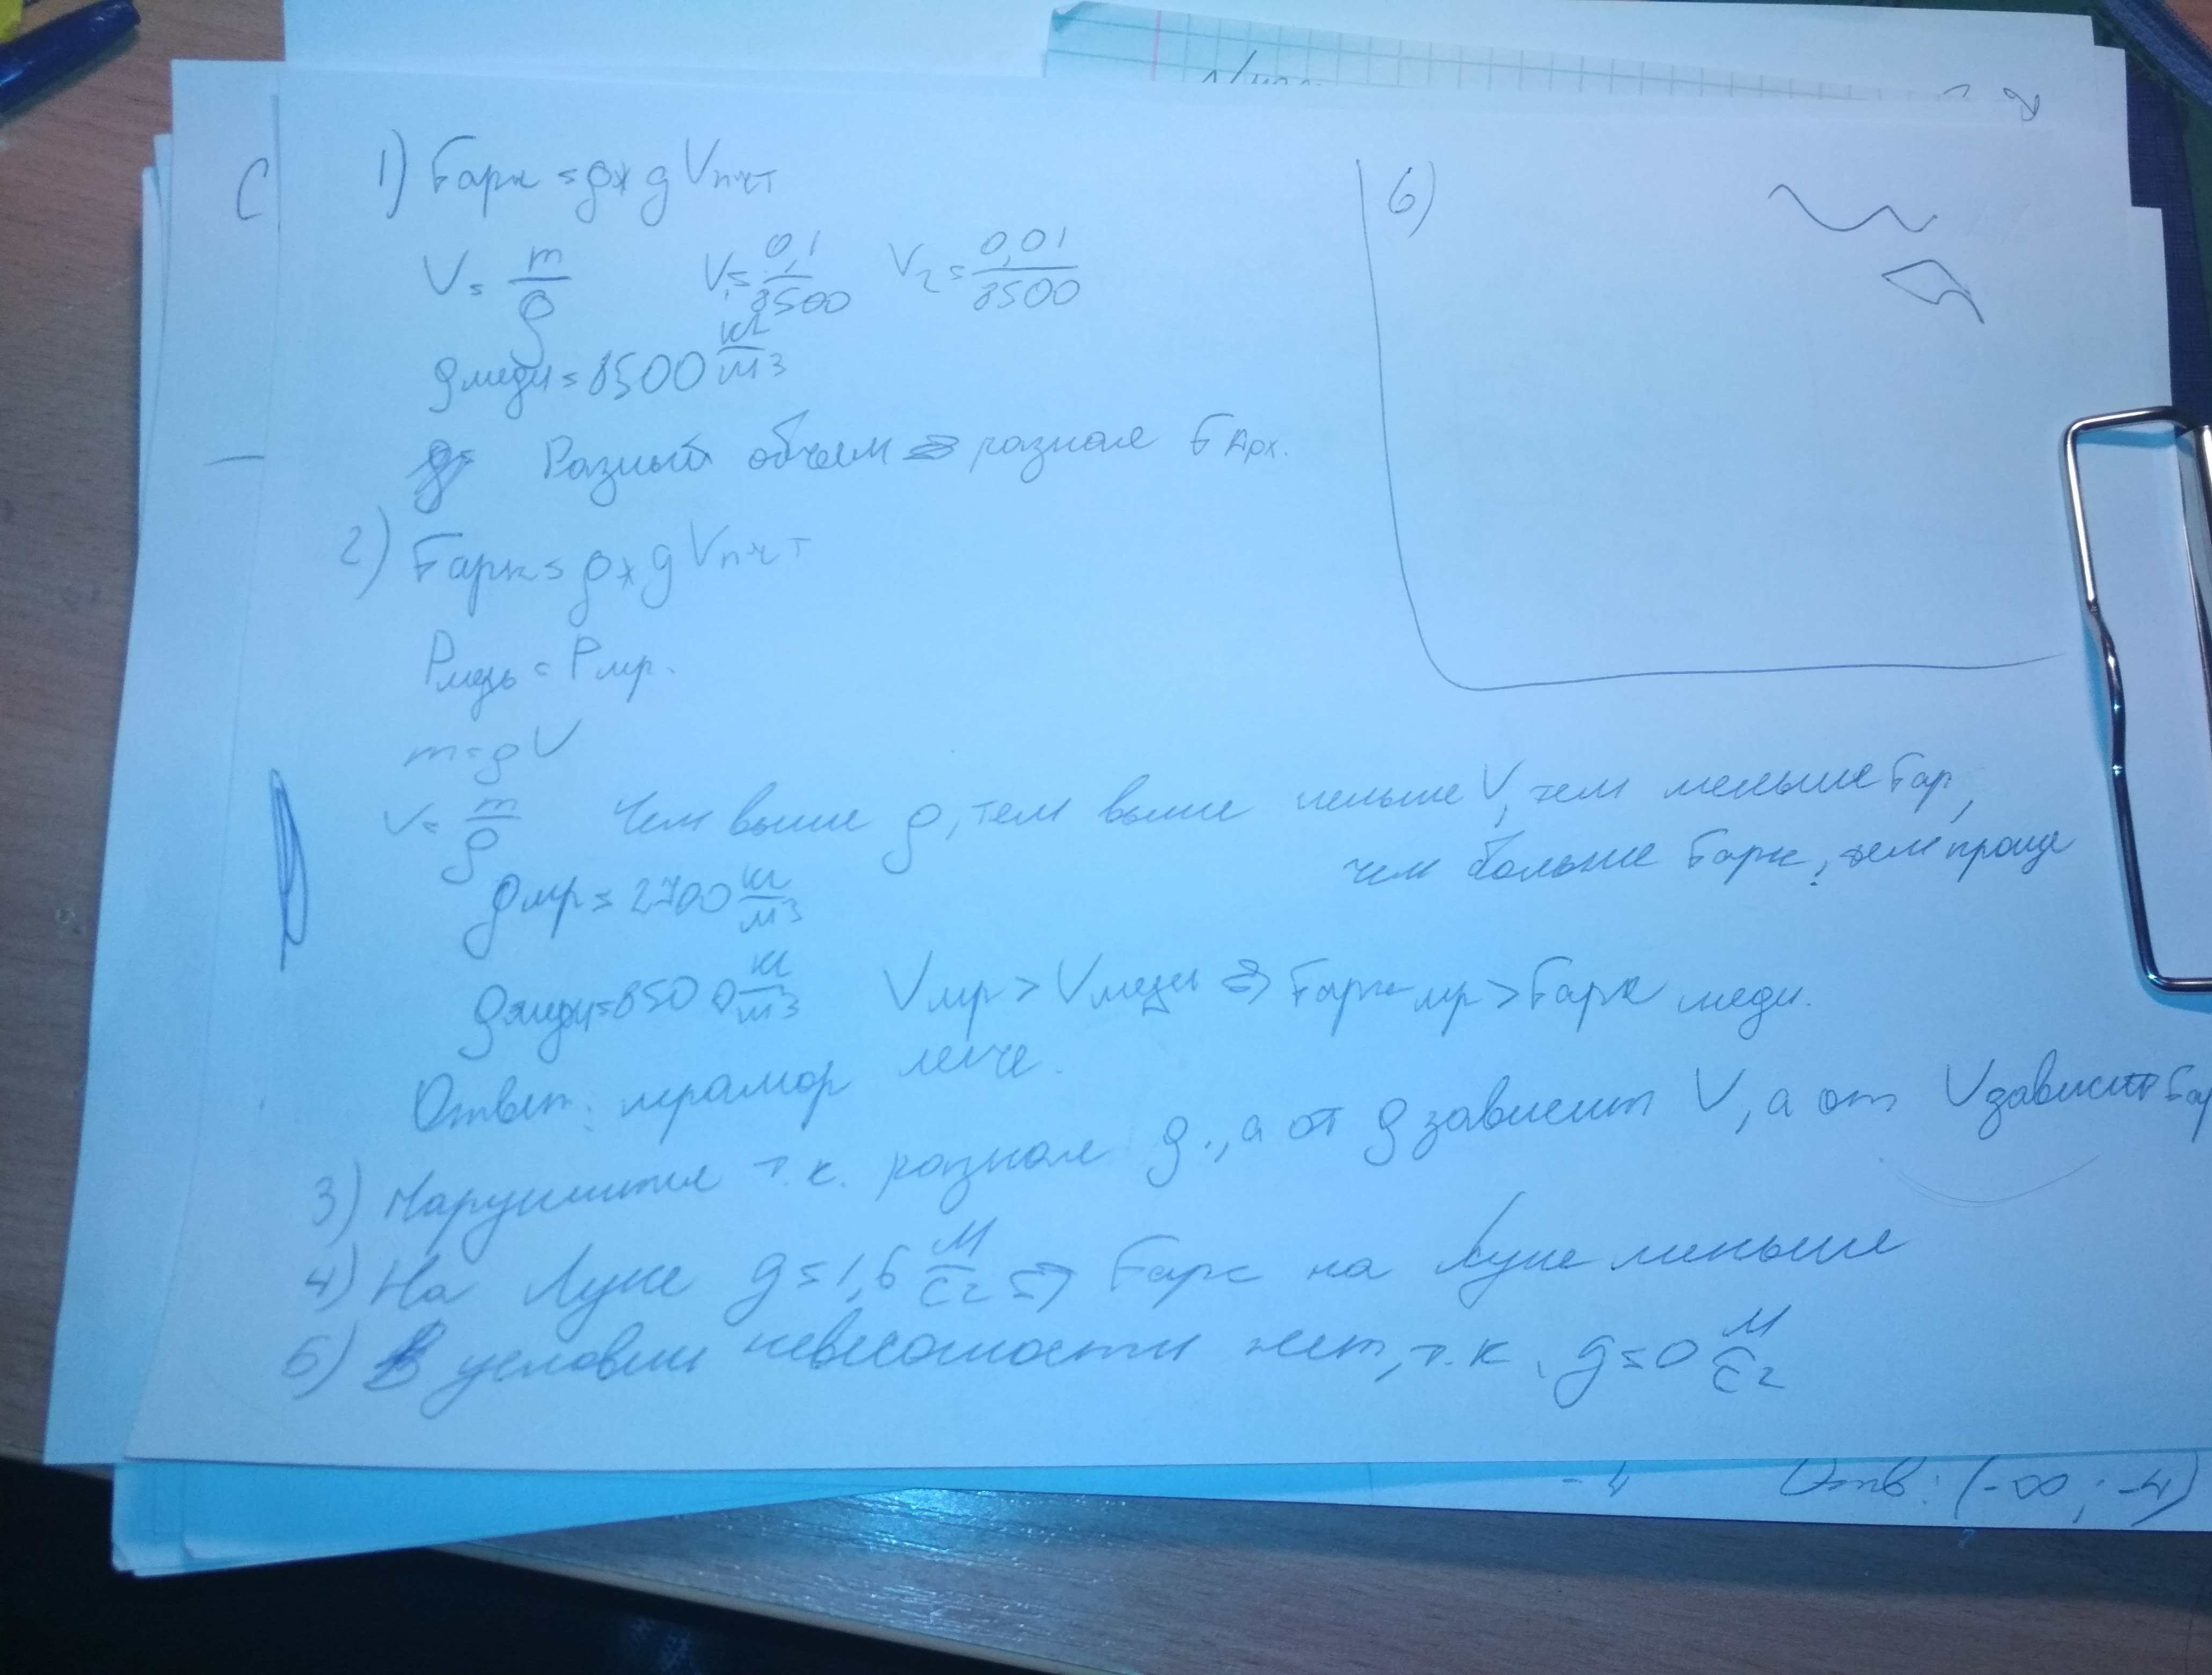 С
1) Fарх = ρж g Vпчт
V = m/ρ V₁ = 0,1/8500 V₂ = 0,01/8500
ρмеди = 8500 кг/м3
Разный объем ⇒ разная FАрх.
2) Fарх = ρж g Vпчт
Pмедь = Pмр.
m = ρV
V = m/ρ Чем выше ρ, тем выше меньше V, тем меньше Fар,
чем больше Fарх, тем проще
ρмр = 2700 кг/м3
ρмеди = 8500 кг/м3 Vмр > Vмеди ⇒ Fарх мр > Fарх меди.
Ответ: мрамор легче.
3) Нарушится т.к. разная ρ., а от ρ зависит V, а от V зависит Fар
4) На Луне g = 1,6 м/с2 ⇒ Fарх на Луне меньше
5) В условии невесомости нет, т.к. g = 0 м/с2
6)
-4 Отв: (-∞; -4)